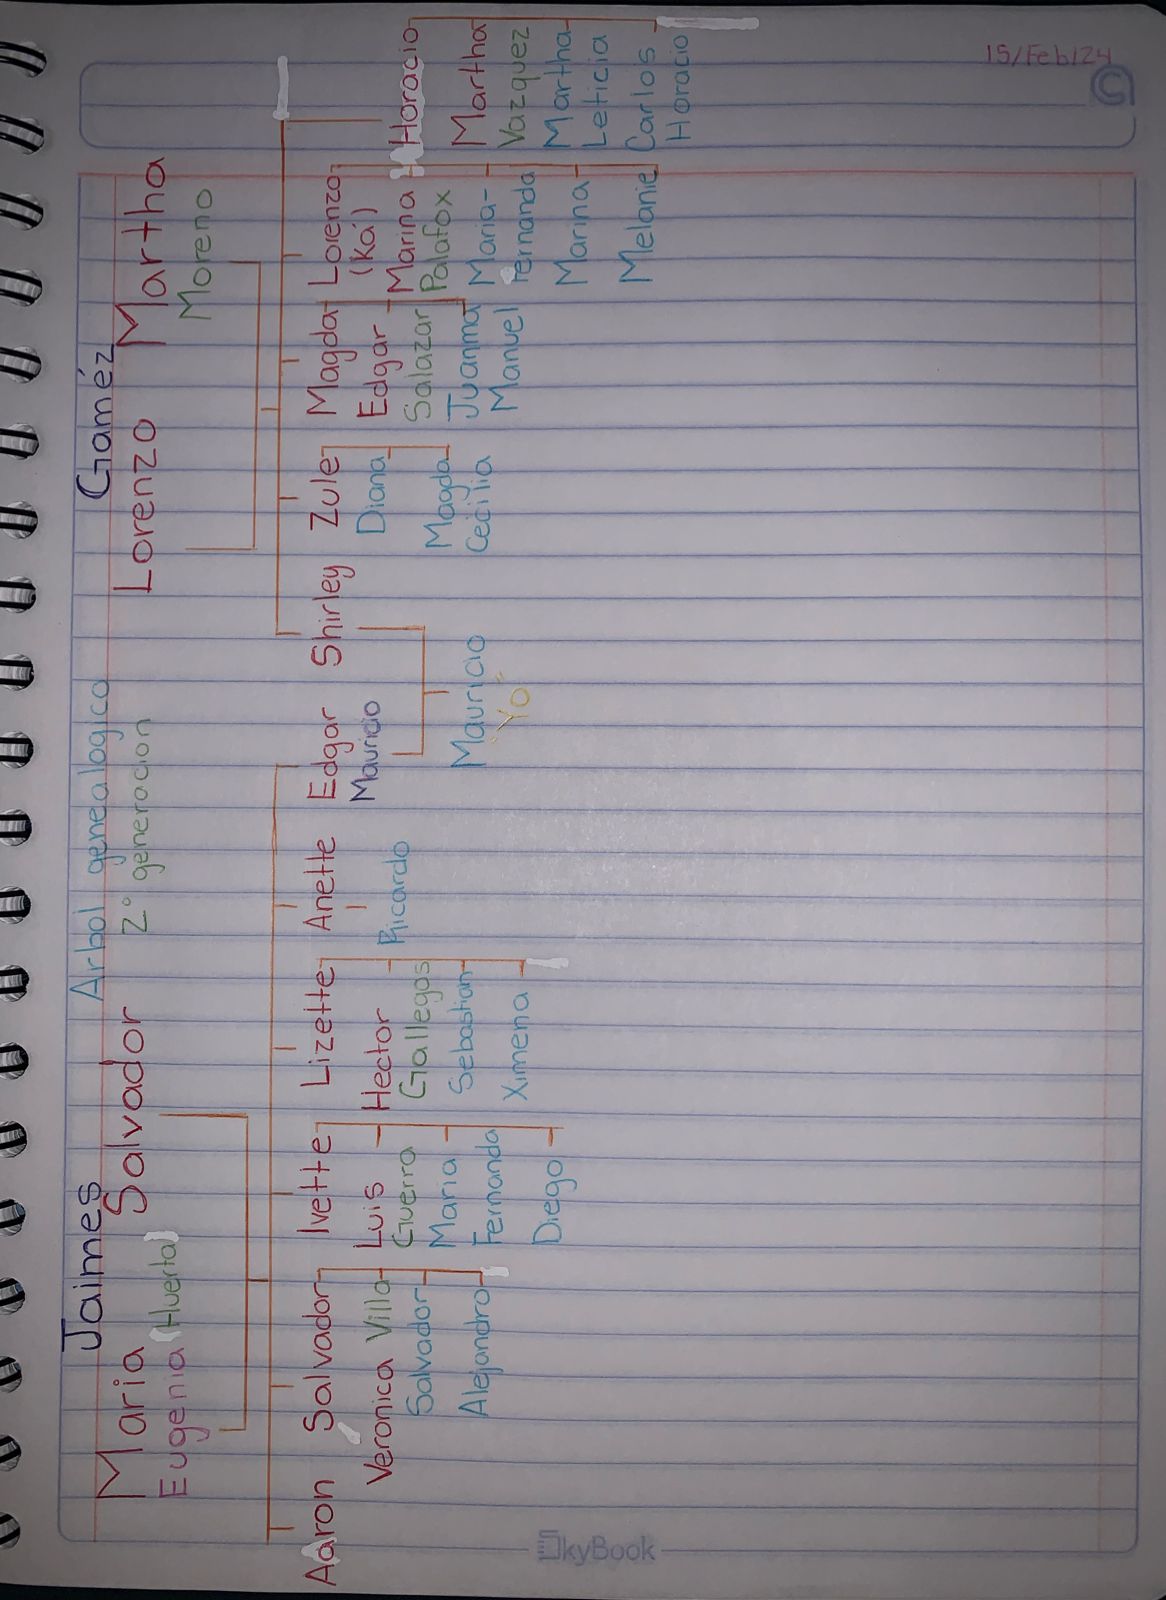 15/Feb/24
Arbol genealogico
2° generacion
Jaimes
Gaméz
Maria
Eugenia (Huerta)
Salvador
Lorenzo
Martha
Moreno
Aaron
Salvador
Veronica Villa
Salvador
Alejandro
Ivette
Luis
Guerra
Maria
Fernanda
Diego
Lizette
Hector
Gallegos
Sebastian
Ximena
Anette
Ricardo
Edgar
Mauricio
Shirley
Mauricio
"Yo"
Zule
Diana
Magda
Cecilia
Magda
Edgar
Salazar
Juanma
Manuel
Lorenzo
(Kai)
Marina
Palafox
Maria-
Fernanda
Marina
Melanie
Horacio
Martha
Vazquez
Martha
Leticia
Carlos
Horacio
SkyBook